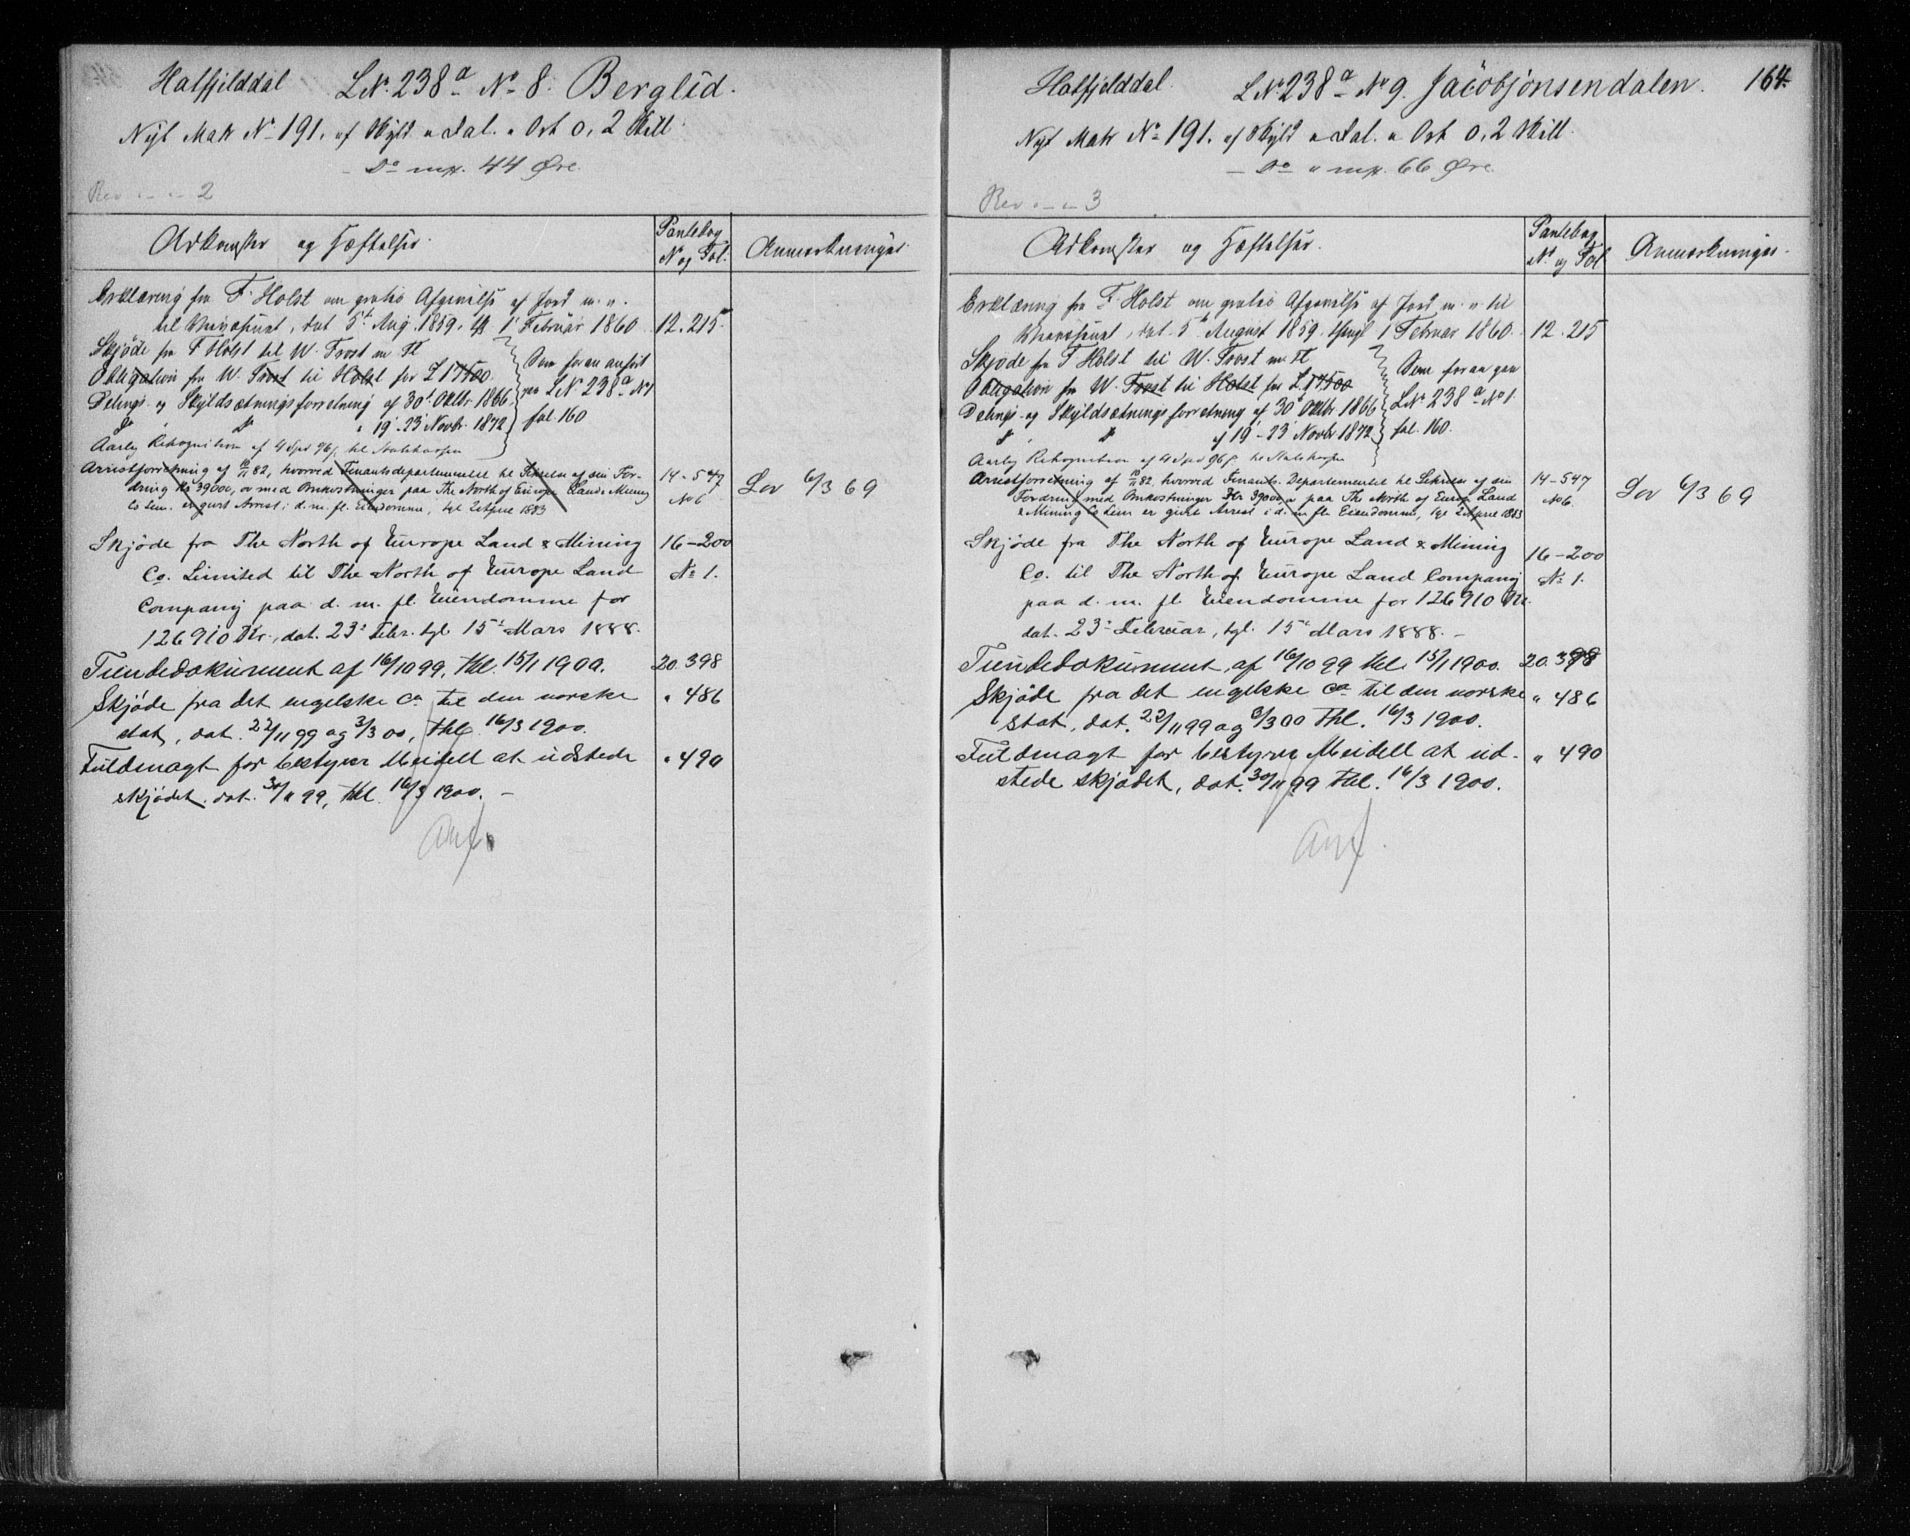 Hatfjelddal L.No. 238 a No 8. Berglid.
Nyt Matr No 191. af Skyld " Dal. " Ort 0, 2 Skill.
— Do — 44 Øre.
Rev — 2
Adkomster og Hæftelser.
Pantebog
No og Fol.
Anmærkninger
Erklæring fra F. Holst om gratis Afgivelse af Jord m. v.
til, dat 5t Aug. 1859. 1 Februar 1860. 12.215
Skjøde fra F Holst til W. Frost m. fl
Obligation fra W. Frost til Holst for £ 17500.
Delings- og Skyldsætningsforretning af 30t Oktbr 1866
Do Do " 19-23 Novbr. 1872
Som foran anført
paa L No 238 a No 1
fol. 160
Aarlig Rekognition af 4 Spd 96 ß til Statskassen
Arrestforretning af 10/11 82, hvorved Finantsdepartementet til Sikrelse af sin For-
dring Kr 39000, og med Omkostninger paa The North of Europe Land & Mining
Co Lim. er gjort Arrest i d. m. fl. Eiendomme, tgl 2 April 1883
14-547
No 6
Lov 6/3 69
Skjøde fra The North of Europe Land & Mining 16-200
Co. Limited til The North of Europe Land No 1.
Company paa d. m. fl. Eiendomme for
126910 Kr., dat. 23d Febr. tgl. 15d Mars 1888.
Tiendedokument af 16/10 99, thl. 15/1 1900. 20.398
Skjøde fra det engelske Co til den norske " 486
stat, dat. 22/11 99 og 3/3 00, thl. 16/3 1900.
Fuldmagt for bestyrer Meidell at udstede " 490
skjødet, dat. 30/11 99, thl. 16/3 1900. —
Anf.
164.
Hatfjelddal. L No. 238 a No 9. Jacobjonsendalen.
Nyt Matr No 191. af Skyld " Dal. " Ort 0, 2 Skill.
— Do — 66 Øre.
Rev — 3
Adkomster og Hæftelser.
Pantebog
No og Fol
Anmærkninger.
Erklæring fra F. Holst om gratis Afgivelse af Jord m. v. til
, dat. 5t August 1859. 1 Februar 1860. 12.215
Skjøde fra F Holst til W. Frost m. fl
Obligation fra W. Frost til Holst for £ 17500
Delings- og Skyldsætningsforretning af 30t Oktbr 1866
Do Do af 19-23 Novbr 1872
Som foran paa
L No 238 a No 1.
fol. 160.
Aarlig Rekognition af 4 Spd 96 ß til Statskassen
Arrestforretning af 10/11 82, hvorved Finants-Departementet til Sikrelse af sin
Fordring med Omkostninger Kr 39000, paa The North of Europe Land
& Mining Co Lim er gjort Arrest i d. m fl. Eiendomme, tgl 2 April 1883
14-547
No 6.
Lov 6/3 69
Skjøde fra The North of Europe Land & Mining 16-200
Co. til The North of Europe Land Company No 1.
paa d. m. fl Eiendomme for 126910 Kr.
dat. 23d Februar, tgl. 15d Mars 1888. —
Tiendedokument, af 16/10 99 thl. 15/1 1900. 20.398
Skjøde fra det engelske Co til den norske " 486
stat, dat. 22/11 99 og 3/3 00 thl. 16/3 1900.
Fuldmagt for bestyrer Meidell at ud- " 490
stede skjødet, dat. 30/11 99 thl. 16/3 1900.
Anf.